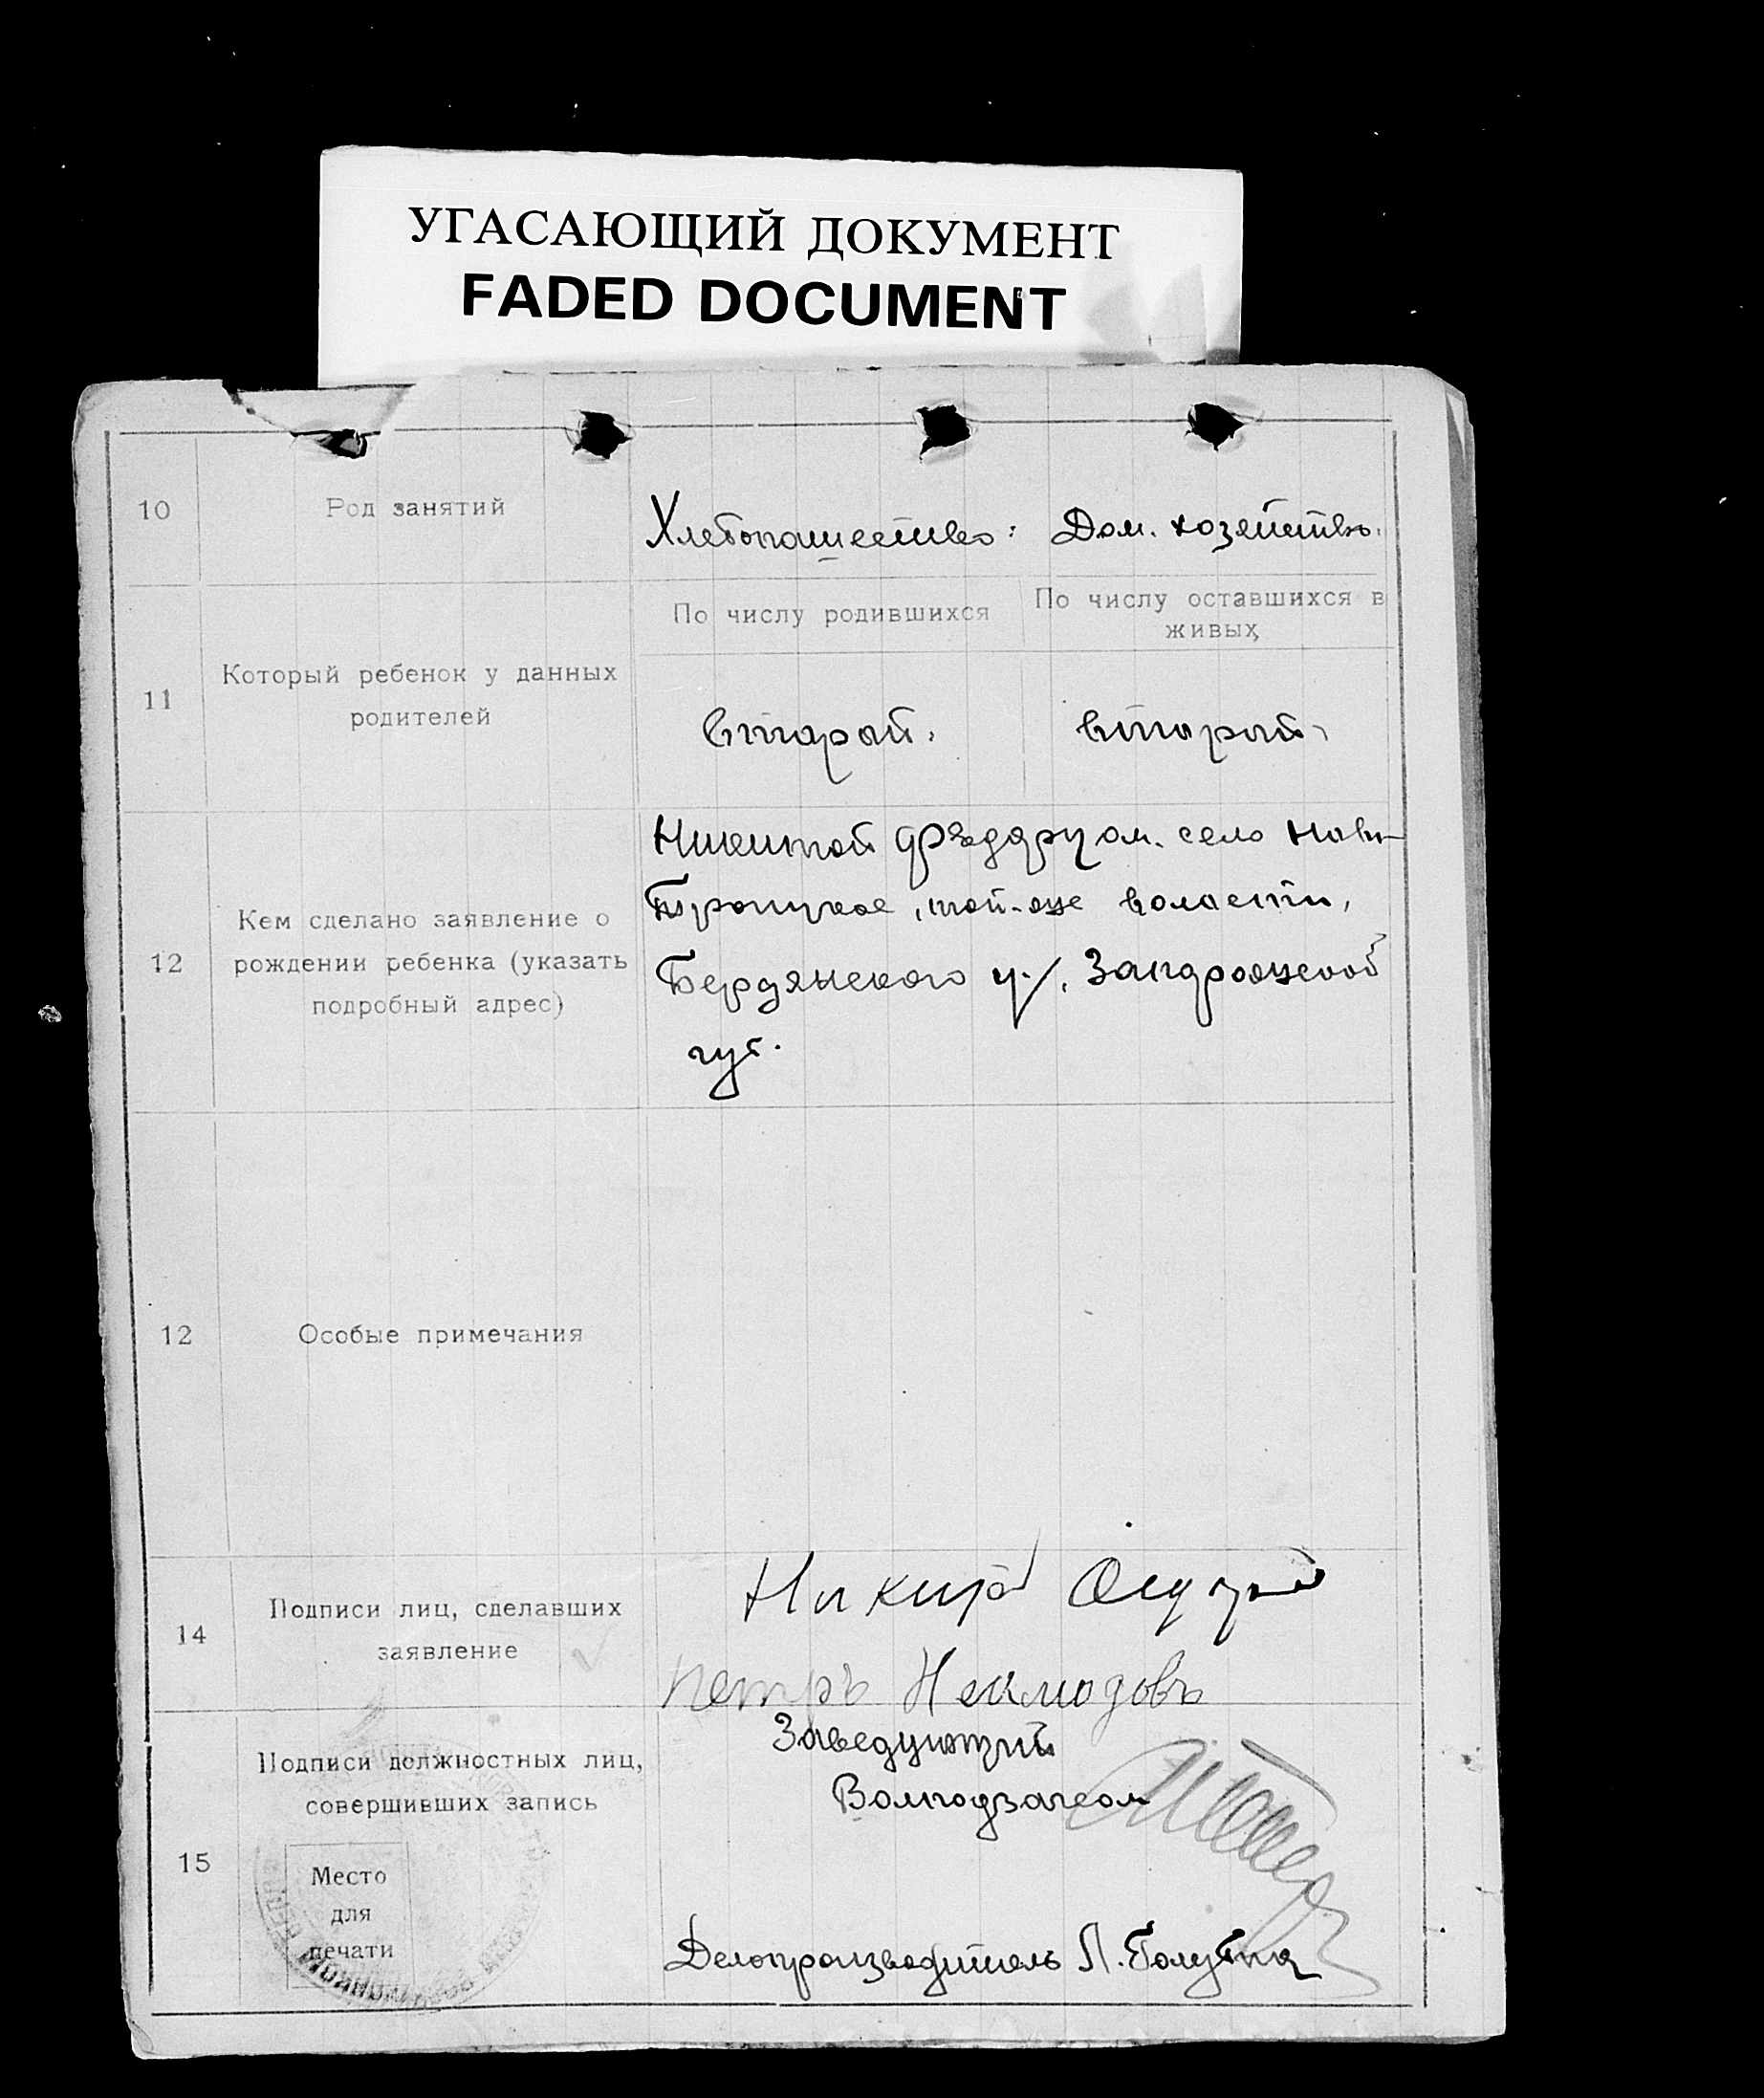 УГАСАЮЩИЙ ДОКУМЕНТ
FADED DOCUMENT
10
Род занятий
Хлебопашество:
Дом. хозяйство.
11
Который ребенок у данных
родителей
По числу родившихся
По числу оставшихся в
живых
второй.
второй.
12
Кем сделано заявление о
рождении ребенка (указать
подробный адрес)
Никитой село Ново-
Троицкое, той-же волости,
Бердянского у., Запорожской
губ.
12
Особые примечания
14
Подписи лиц, сделавших
заявление
Никита
Петръ
15
Подписи должностных лиц,
совершивших запись
Место
для
печати
Заведующий
Волподзагсом
Делопроизводитель